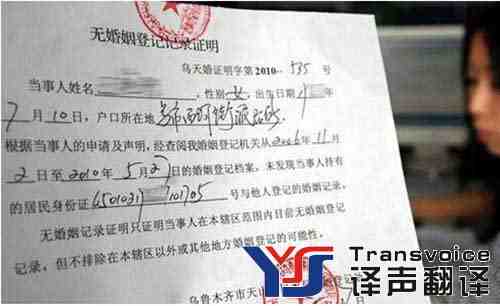 无婚姻登记记录证明
乌天婚证明字第2010-535号
当事人姓名 ，性别 女，出生日期 年
7月10日，户口所在地
根据当事人的申请及声明，经查阅我婚姻登记机关从2006年11月
2日至2010年5月27日的婚姻登记档案，未发现当事人持有
的居民身份证 号与他人登记的婚姻记录。
无婚姻记录证明只证明当事人在本辖区范围内目前无婚姻登
记录，但不排除在本辖区以外或其他地方婚姻登记的可能性。
乌鲁木齐市天山
YS
Transvoice
译声翻译